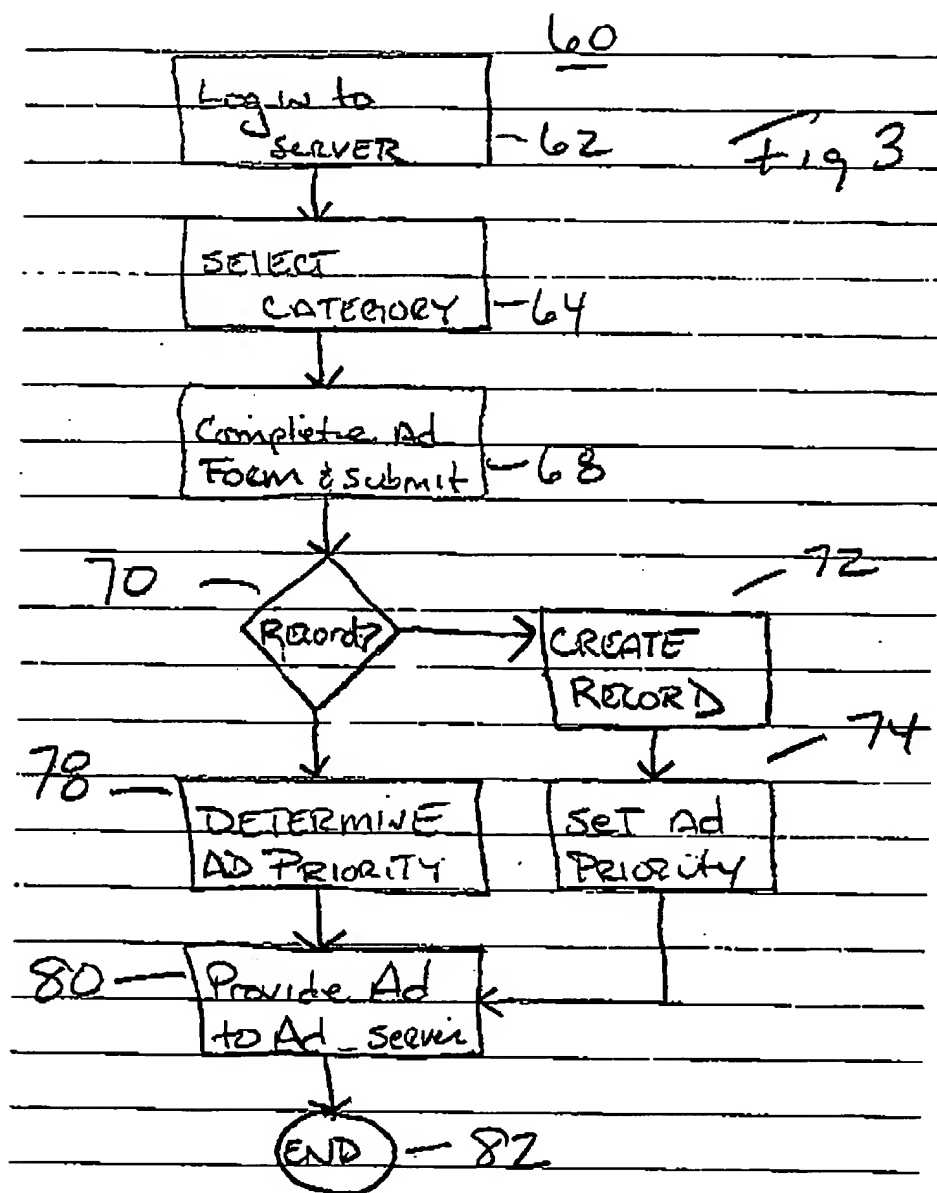 60
Login to
SERVER
62
Fig 3
SELECT
CATEGORY
64
Complete Ad
Form & submit
68
70
Record?
72
CREATE
RECORD
74
78
DETERMINE
AD PRIORITY
SET Ad
PRIORITY
80
Provide Ad
to Ad_server
END
82